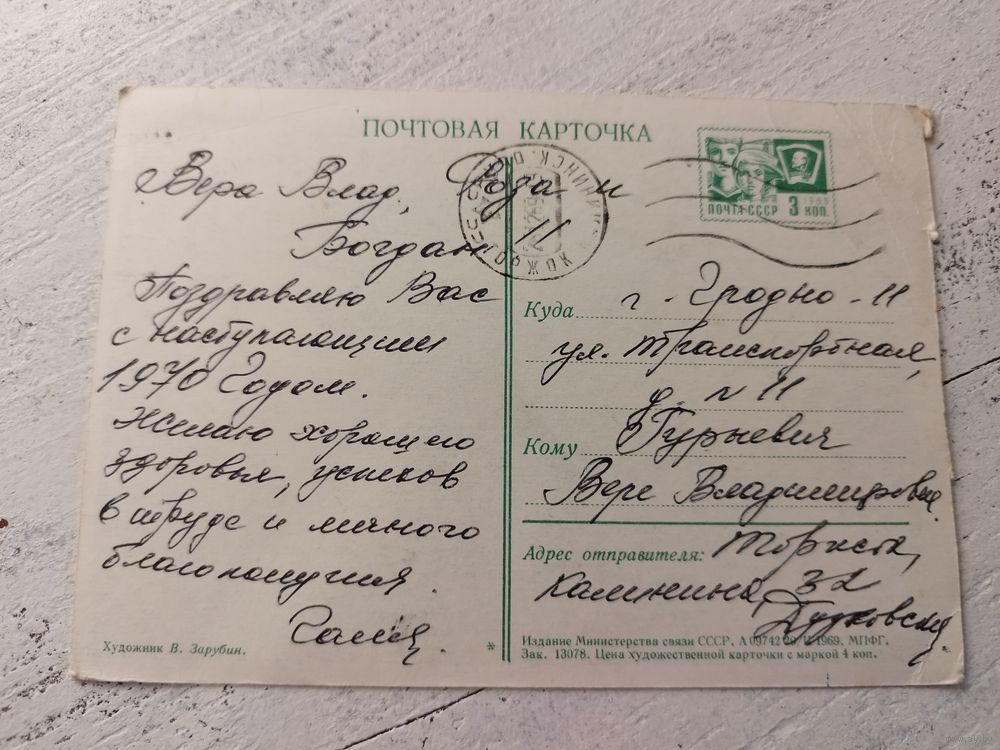 ПОЧТОВАЯ КАРТОЧКА
Вера Влад., Роза и
Богдан !!
Поздравляю Вас
с наступающим
1970 Годом.
Желаю хорошего
здоровья, успехов
в труде и личного
благополучия.
Галя.
Художник В. Зарубин.
*
ПОЧТА СССР 3 КОП.
Куда г. Гродно - 11
ул. Транспортная,
д. № 11
Кому Гурневич
Вере Владимировне
Адрес отправителя:
Калинина, 32
Издание Министерства связи СССР. А 09742 1969. МПФГ.
Зак. 13078. Цена художественной карточки с маркой 4 коп.